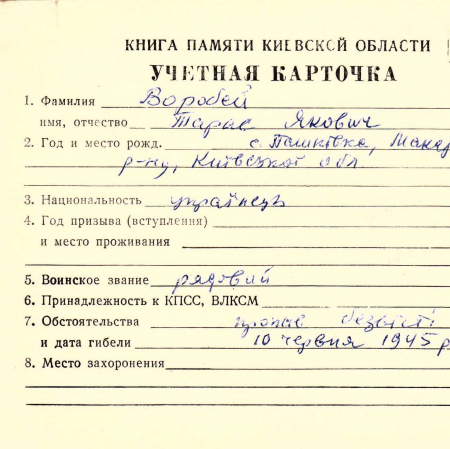 КНИГА ПАМЯТИ КИЕВСКОЙ ОБЛАСТИ
УЧЕТНАЯ КАРТОЧКА
1. Фамилия Воробей
имя, отчество Тарас Якович
2. Год и место рожд. с. Пашківка, Макар
р-ну, Київської обл.
3. Национальность українець
4. Год призыва (вступления)
и место проживания
5. Воинское звание рядовий
6. Принадлежность к КПСС, ВЛКСМ
7. Обстоятельства пропав безвісті
и дата гибели 10 червня 1945 р
8. Место захоронения